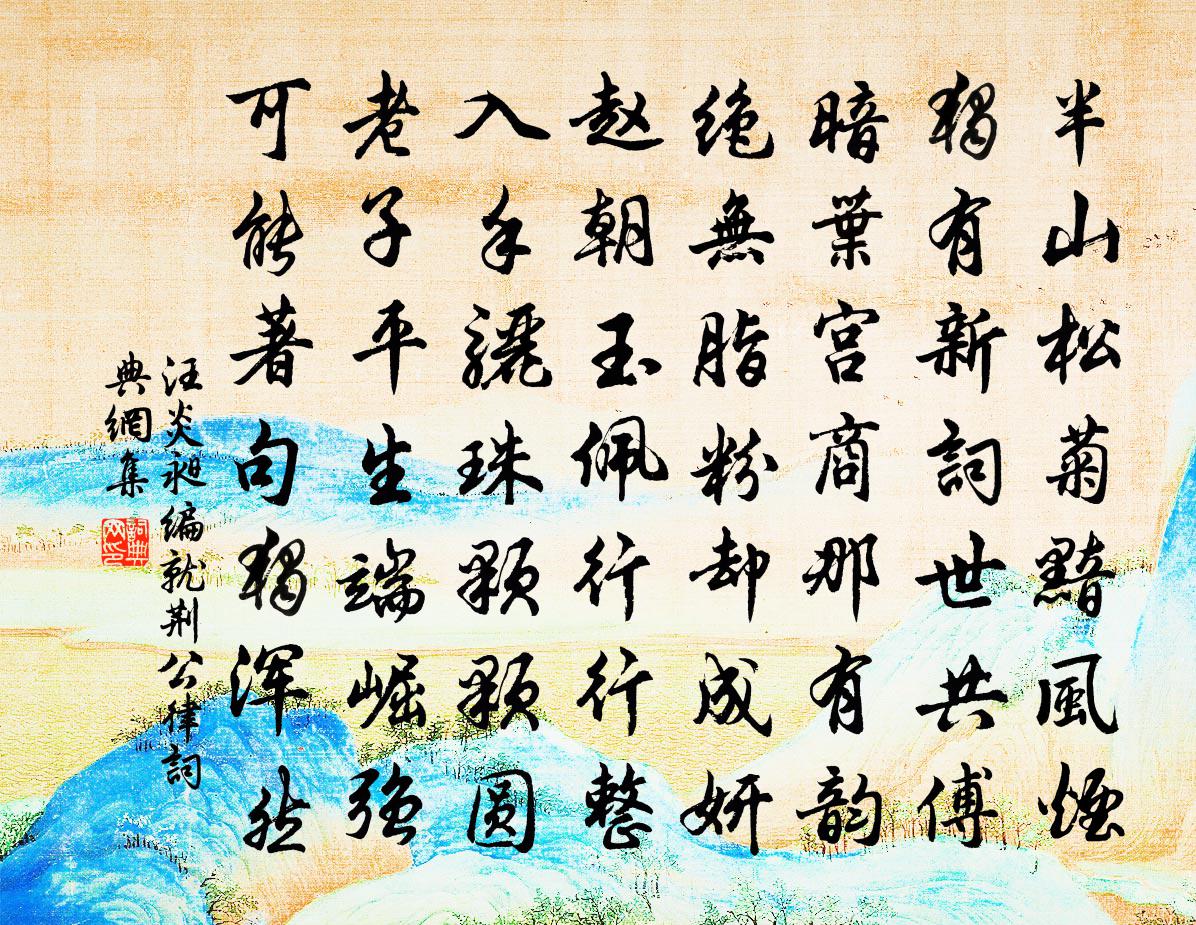 半山松菊黯風煙
獨有新詞世共傳
暗葉宮商那有韵
絶無脂粉却成妍
趙朝玉佩行行整
入手驪珠顆顆圓
老子平生端崛强
可能著句獨渾然
汪炎昶編就荆公律詞
典網集
詞典
网印